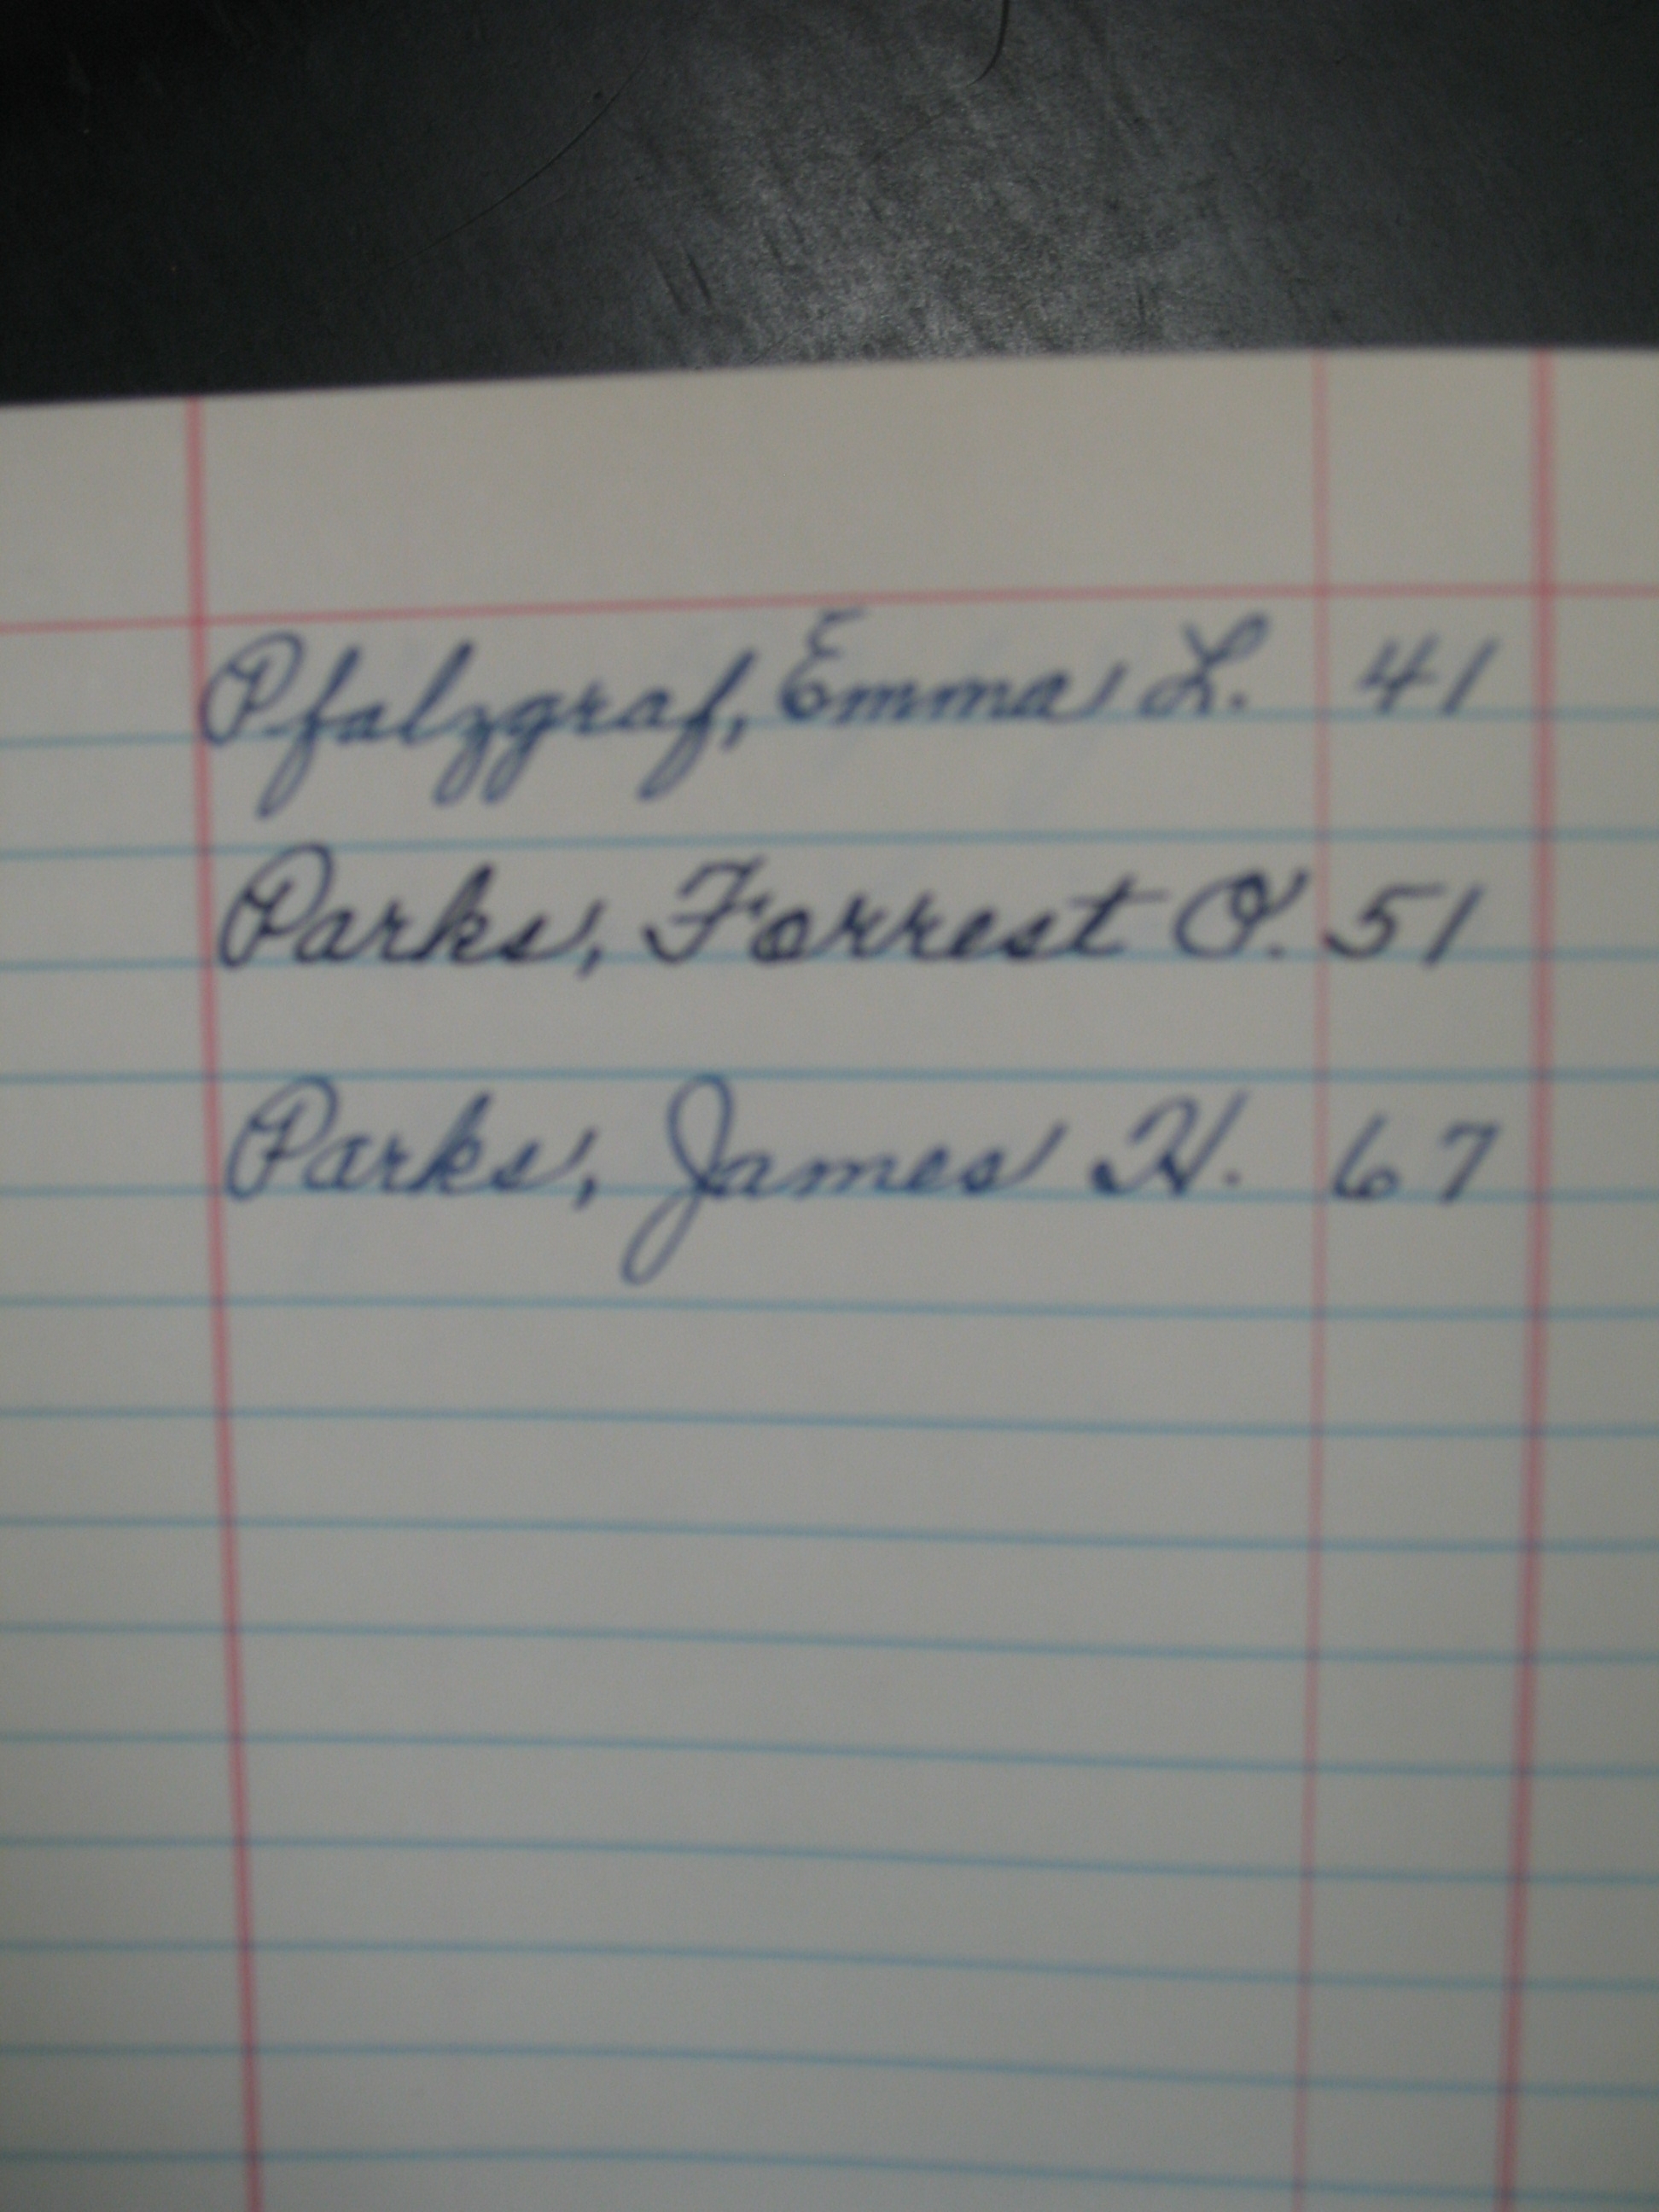 Pfalzgraf, Emma L. 41
Parks, Forrest O. 51
Parks, James H. 67